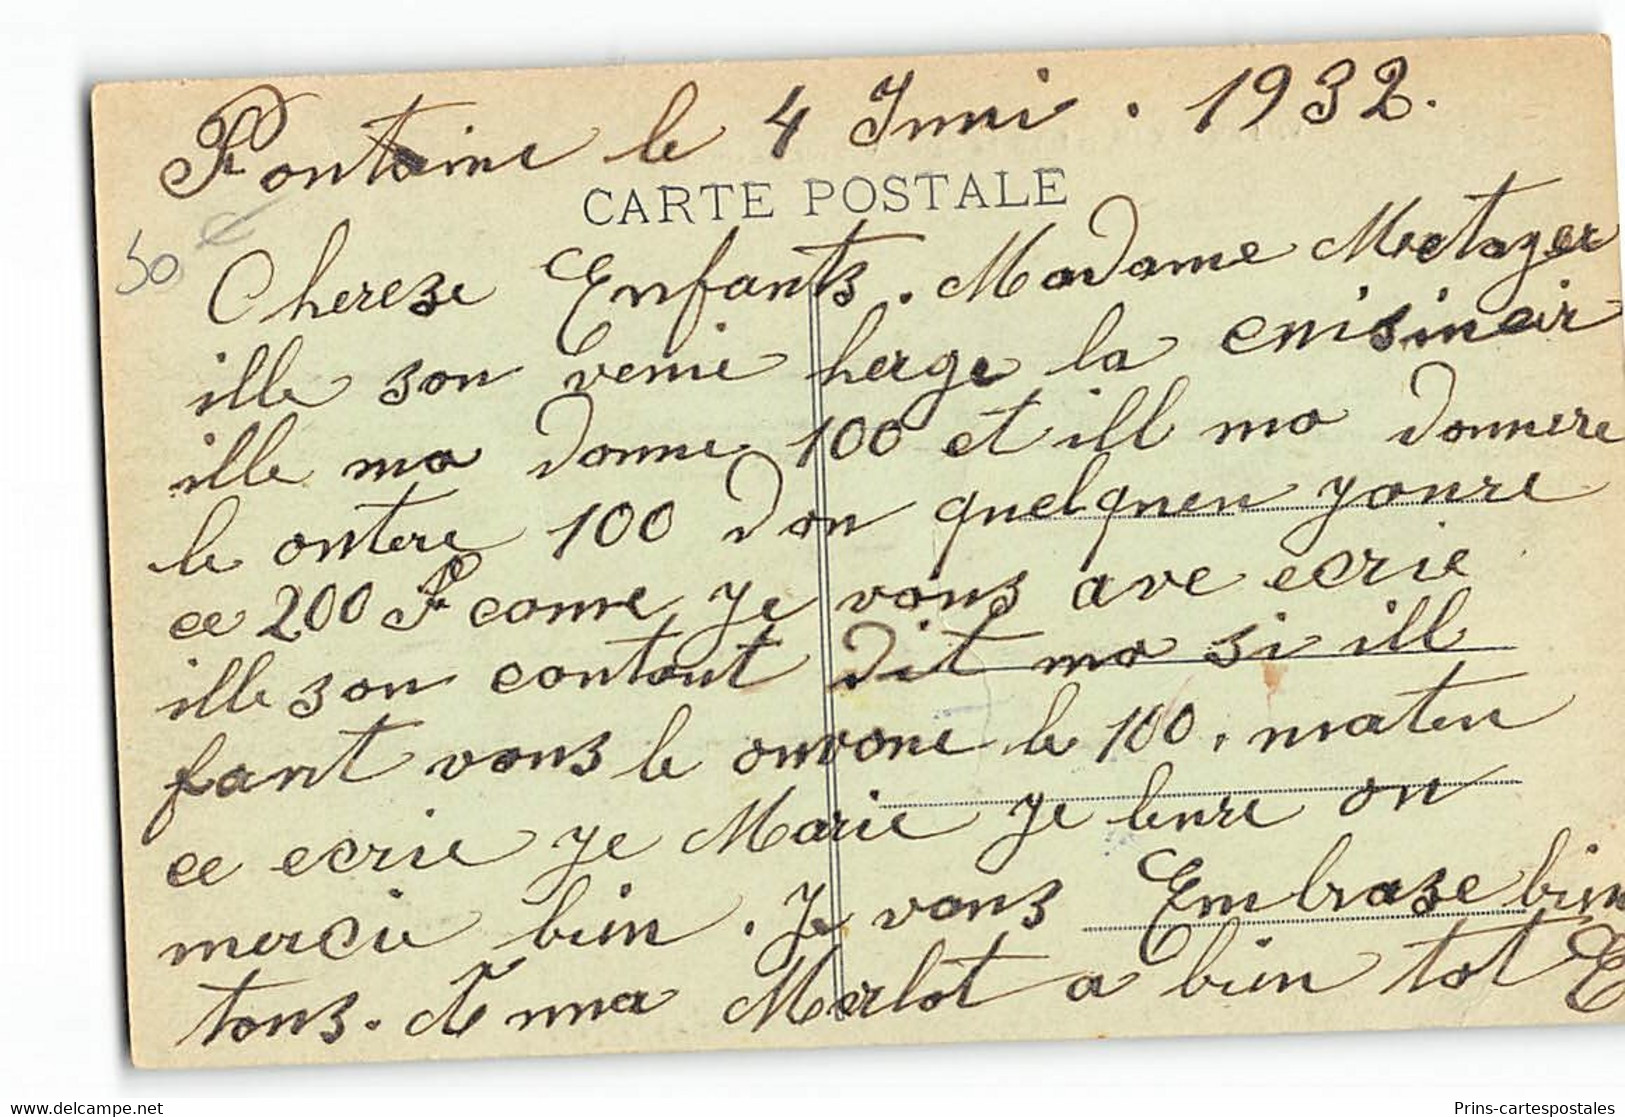 Fontaine le 4 Juni . 1932.
CARTE POSTALE
50
Chereze Enfants. Madame Metzger
ille son venie herge la cuisineir
ille ma donne 100 et ill ma donnere
le ontere 100 dan quelquen youre
ce 200 F come je vous ave ecrie
ille son contout dit ma si ill
faut vous le onvone le 100, maten
ce ecrie je Marie je leure on
mercie bien. Je vous Embraze bien
tous. Emma Merlot a bien tot
Prins-cartespostales